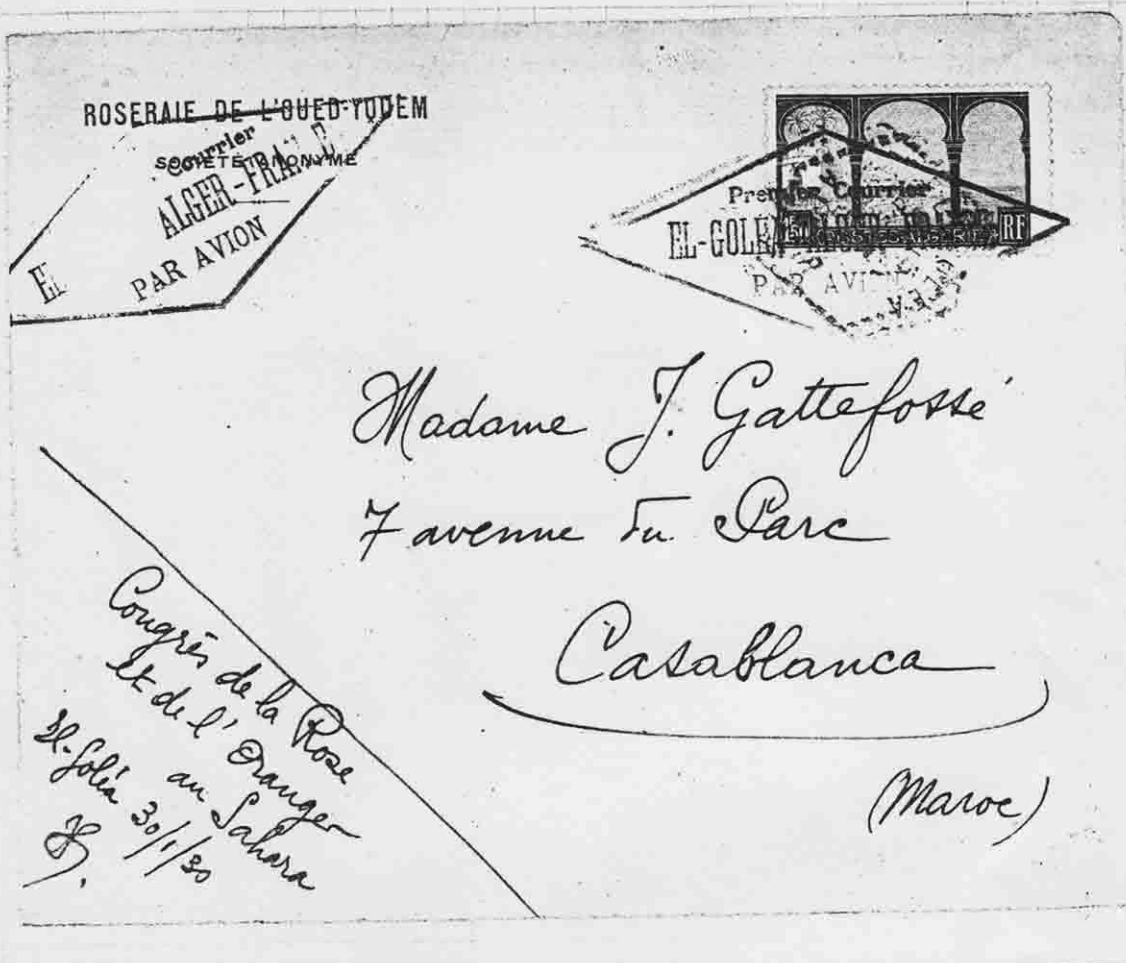 ROSERAIE DE L'OUED-YUDEM
SOCIÉTÉ ANONYME
Courrier
ALGER-FRANCE
EL
PAR AVION
Premier Courrier
EL-GOLÉA ALGER-FRANCE
PAR AVION
RF
Madame J. Gattefossé
7 avenue du Parc
Casablanca
(Maroc)
Congrès de la Rose
et de l'Oranger
au Sahara
El-Goléa 30/1/30